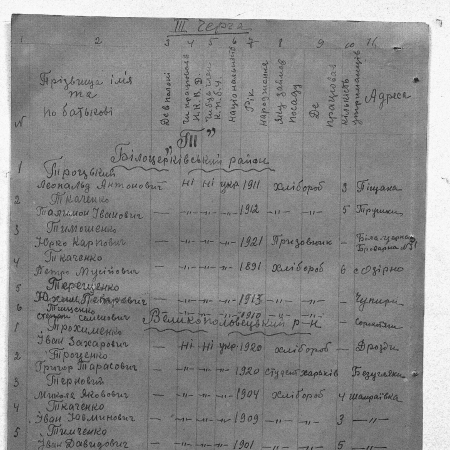 III черга
1 2 3 4 5 6 7 8 9 10 11
N Прізвища ім'я та по батькові Де в полоні Чи працював Н.К.В.Д. Національність Рік народження Яку займав посаду Де працював кількість утриманців Адреса
"Т"
Білоцерківський район
1 Троцький
Леональд Антонович — ні ні укр 1911 Хлібороб 3 Піщана
2 Ткаченко
Пантимон Іванович — -"- -"- -"- 1912 -"- -"- 5 Трушки
3 Тимошенко
Юрко Карпович — -"- -"- -"- 1921 Призовник — Біла
4 Ткаченко
Петро Мусійович — -"- -"- -"- 1891 Хлібороб 6 Озірно
5 Терещенко
Юхим Петрович — -"- -"- -"- 1913 -"- -"- — Чупири
6 Тищенко
-"- -"- -"- 1910 -"-
Великополовецький р-н
1 Трохименко
Іван Захарович — ні ні укр 1920 хлібороб — Дрозди
2 Троценко
Григор Тарасович — -"- -"- -"- 1920 студент харьків Безугляки
3 Терновий
Микола Якович — -"- -"- -"- 1904 Хлібороб 4 шамраївка
4 Ткаченко
Іван — -"- -"- -"- 1909 -"- -"- 3 -"-
5 Тимченко
Іван Давидович — -"- -"- -"- 1901 -"- -"- 5 -"-